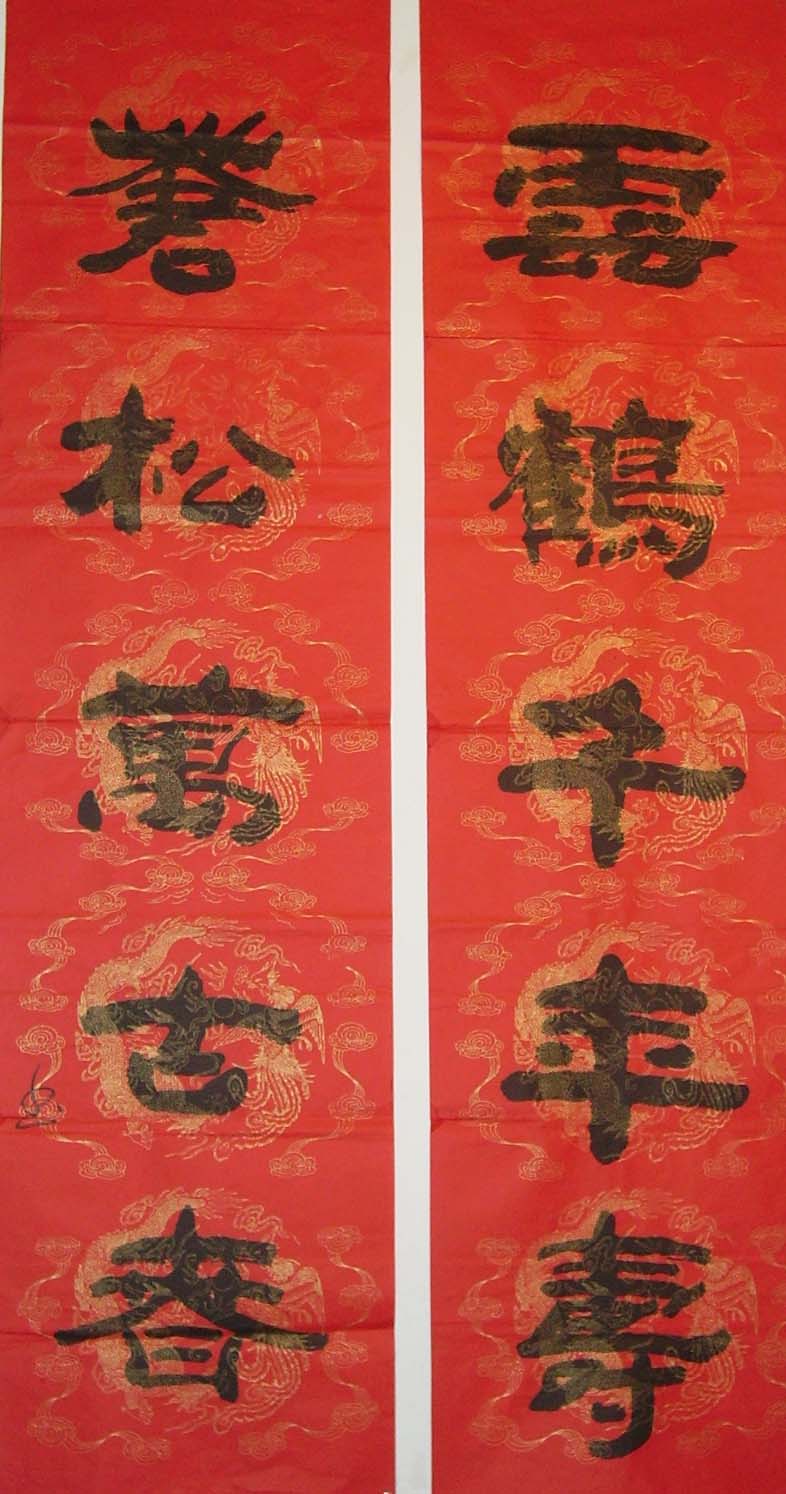 雲鶴千年壽
蒼松萬古春